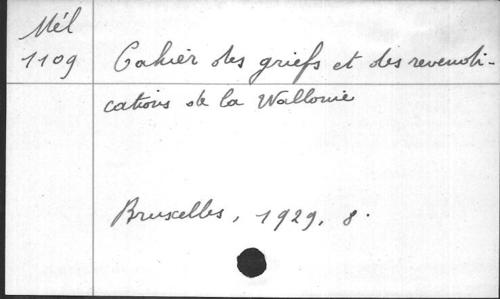 Mél
1109
Cahier des griefs et des revendi-
cations de la Wallonie
Bruxelles, 1929, 8.